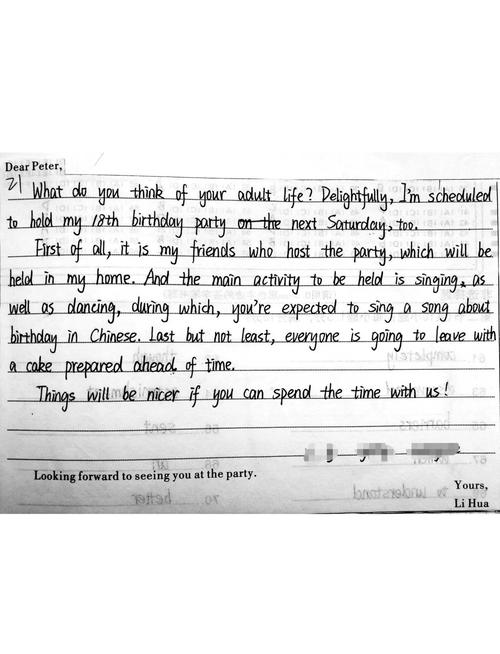 Dear Peter,
21 What do you think of your adult life? Delightfully, I'm scheduled
to hold my 18th birthday party on the next Saturday, too.
First of all, it is my friends who host the party, which will be
held in my home. And the main activity to be held is singing, as
well as dancing, during which, you're expected to sing a song about
birthday in Chinese. Last but not least, everyone is going to leave with
a cake prepared ahead of time.
Things will be nicer if you can spend the time with us!
Looking forward to seeing you at the party.
Yours,
Li Hua